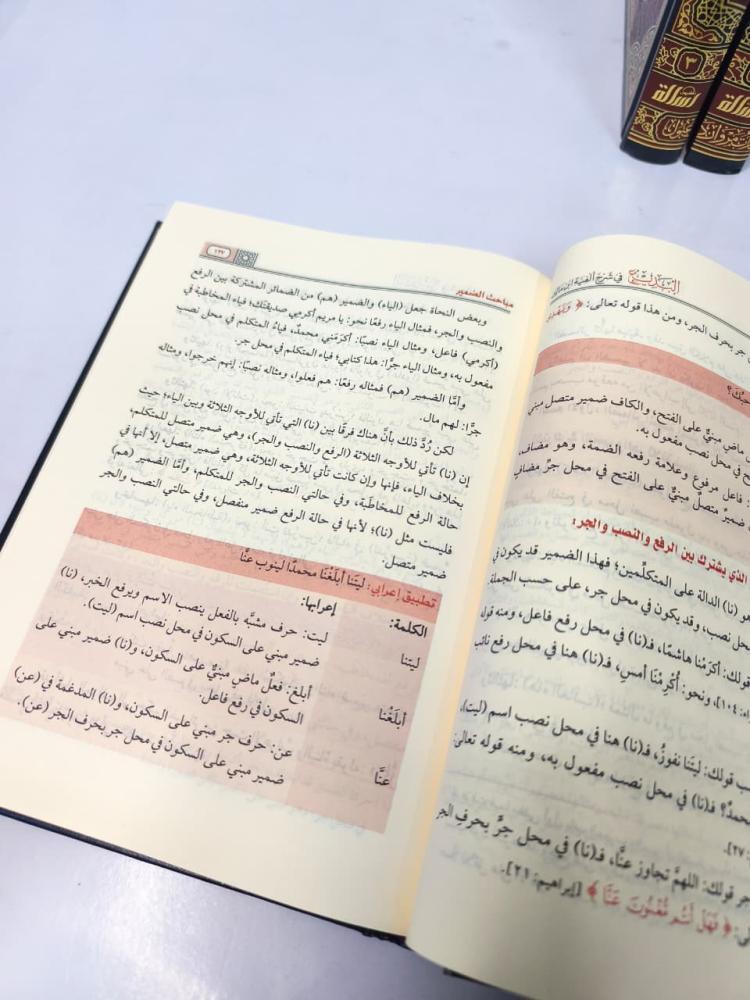 البديع في شرح ألفية ابن مالك
جر بحرف الجر، ومن هذا قوله تعالى: ﴿
ماضٍ مبنيٌّ على الفتح، والكاف ضمير متصل مبني
في محل نصب مفعول به.
فاعل مرفوع وعلامة رفعه الضمة، وهو مضاف،
ضميرٌ متصلٌ مبنيٌّ على الفتح في محل جرّ مضاف
الذي يشترك بين الرفع والنصب والجر:
هو (نا) الدالة على المتكلِّمين؛ فهذا الضمير قد يكون في
محل نصب، وقد يكون في محل جر، على حسب الجملة
قولك: أكرَمْنا هاشمًا، فـ(نا) في محل رفع فاعل، ومنه قوله
١٠٤]، ونحو: أُكْرِمْنا أمسِ، فـ(نا) هنا في محل رفع نائب
قولك: ليتَنا نفوزُ، فـ(نا) هنا في محل نصب اسم (ليت)،
محمدٌ؟ فـ(نا) في محل نصب مفعول به، ومنه قوله تعالى:
٢٧].
جر قولك: اللهمَّ تجاوز عنَّا، فـ(نا) في محل جرٍّ بحرفِ الجر
﴿ فَهَلْ أَنتُم مُّغْنُونَ عَنَّا ﴾ [إبراهيم: ٢١].
مباحث الضمير
١٣٧
وبعض النحاة جعل (الياء) والضمير (هم) من الضمائر المشتركة بين الرفع
والنصب والجر، فمثال الياء رفعًا نحو: يا مريم أكرمي صديقتك؛ فياء المخاطبة في
(أكرمي) فاعل، ومثال الياء نصبًا: أكرَمَني محمدٌ، فياءُ المتكلم في محل نصب
مفعول به، ومثال الياء جرًّا: هذا كتابي؛ فياء المتكلم في محل جر.
وأمَّا الضمير (هم) فمثاله رفعًا: هم فعلوا، ومثاله نصبًا: إنهم خرجوا، ومثاله
جرًّا: لهم مال.
لكن رُدَّ ذلك بأنَّ هناك فرقًا بين (نا) التي تأتي للأوجه الثلاثة وبين الياء؛ حيث
إن (نا) تأتي للأوجه الثلاثة (الرفع والنصب والجر)، وهي ضمير متصل للمتكلم،
بخلاف الياء، فإنها وإن كانت تأتي للأوجه الثلاثة، وهي ضمير متصل، إلا أنها في
حالة الرفع للمخاطَبة، وفي حالتي النصب والجر للمتكلم، وأمَّا الضمير (هم)
فليست مثل (نا)؛ لأنها في حالة الرفع ضمير منفصل، وفي حالتي النصب والجر
ضمير متصل.
تطبيق إعرابي: ليتَنا أبلَغْنَا محمدًا لينوب عنَّا
الكلمة: إعرابها:
ليتنا ليت: حرف مشبَّه بالفعل ينصب الاسم ويرفع الخبر، (نا)
ضمير مبني على السكون في محل نصب اسم (ليت).
أبلَغْنا أبلغ: فعلٌ ماضٍ مبنيٌّ على السكون، و(نا) ضمير مبني على
السكون في رفع فاعل.
عنَّا عن: حرف جر مبني على السكون، و(نا) المدغمة في (عن)
ضمير مبني على السكون في محل جر بحرف الجر (عن).
٣